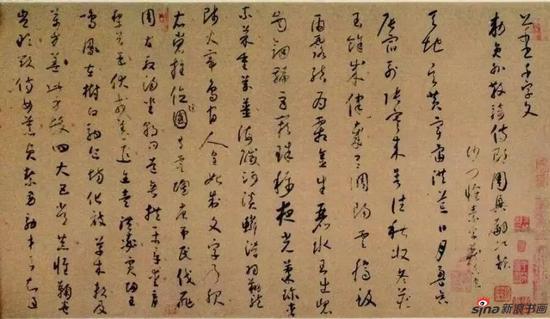 千字文
勅員外散騎侍郎周興嗣次韻
沙門懷素
天地玄黃宇宙洪荒日月盈昃
辰宿列張寒來暑往秋收冬藏
閏餘成歲律召調陽雲騰致
雨露結為霜金生麗水玉出崐
崗劍號巨闕珠稱夜光菓珍李
柰菜重芥薑海鹹河淡鱗潛羽翔龍
師火帝鳥官人皇始制文字乃服
衣裳推位讓國有虞陶唐弔民伐罪
周發殷湯坐朝問道垂拱平章愛育
黎首臣伏戎羌遐邇壹體率賓歸王
鳴鳳在樹白駒食場化被草木賴及
萬方蓋此身髮四大五常恭惟鞠養
豈敢毀傷女慕貞潔男效才良知過
sina新浪书画